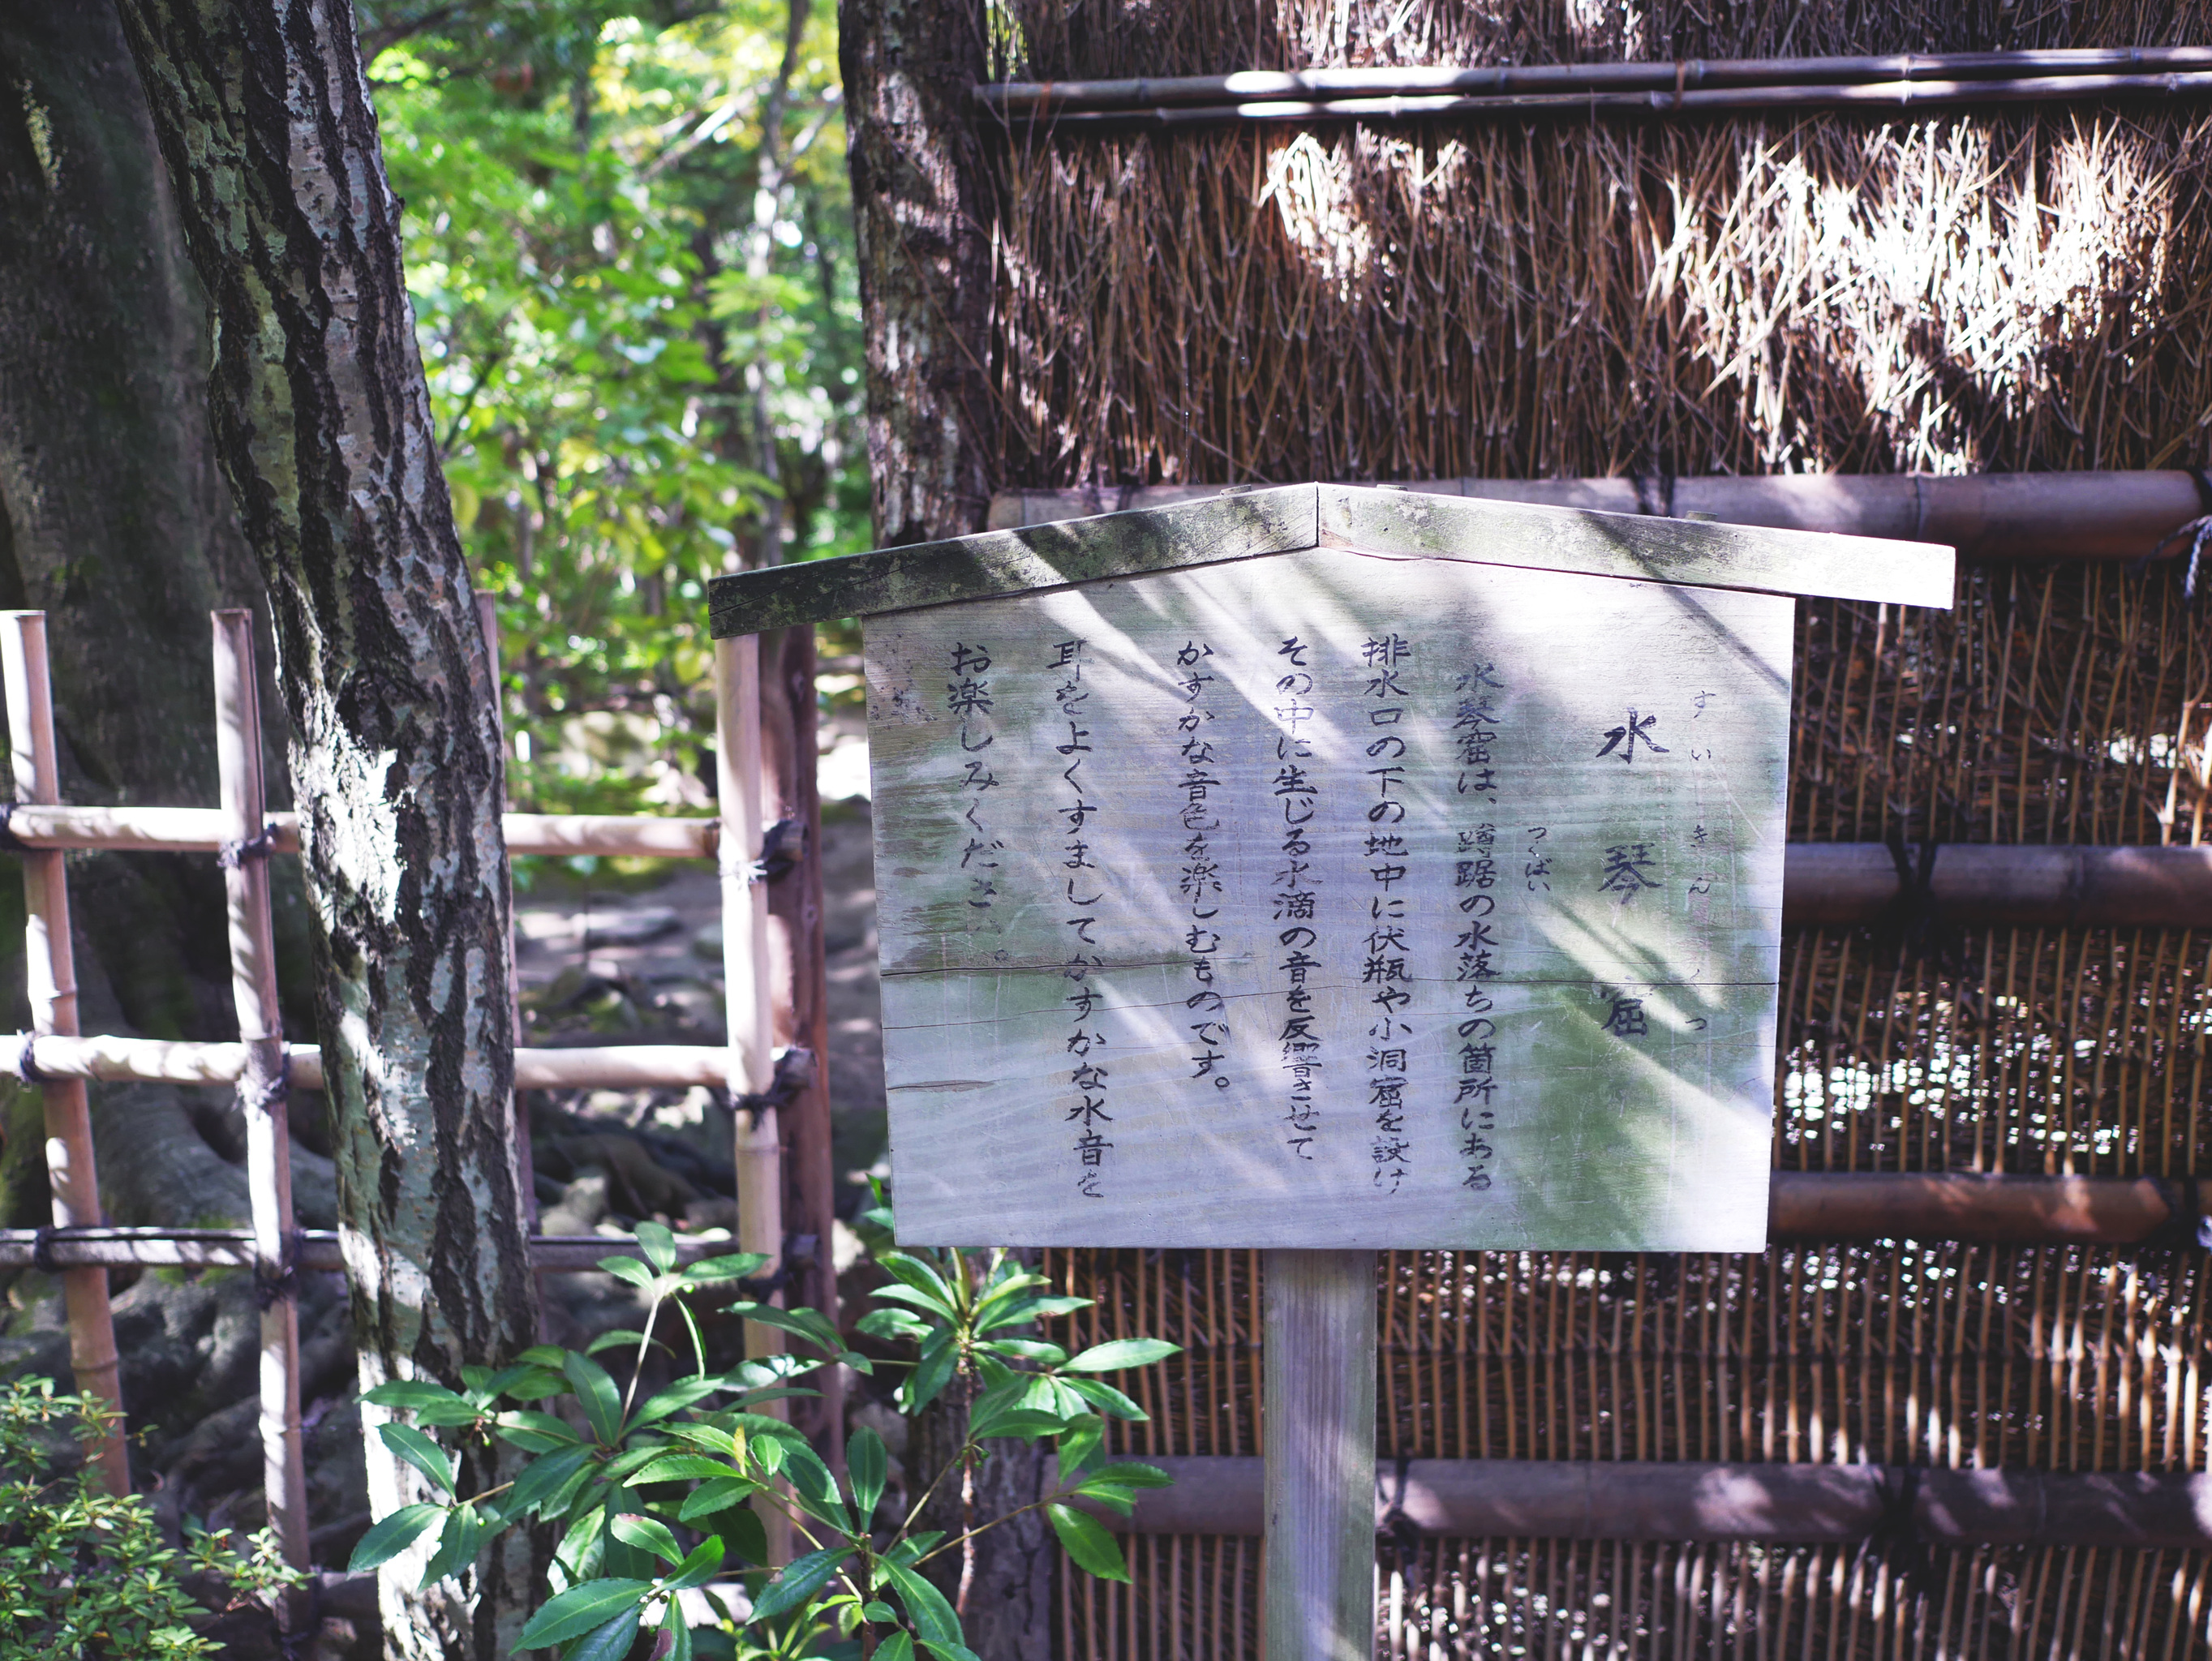 水琴窟
すいきんくつ
水琴窟は、蹲踞の水落ちの箇所にある
つくばい
排水口の下の地中に伏瓶や小洞窟を設け
その中に生じる水滴の音を反響させて
かすかな音色を楽しむものです。
耳をよくすましてかすかな水音を
お楽しみください。